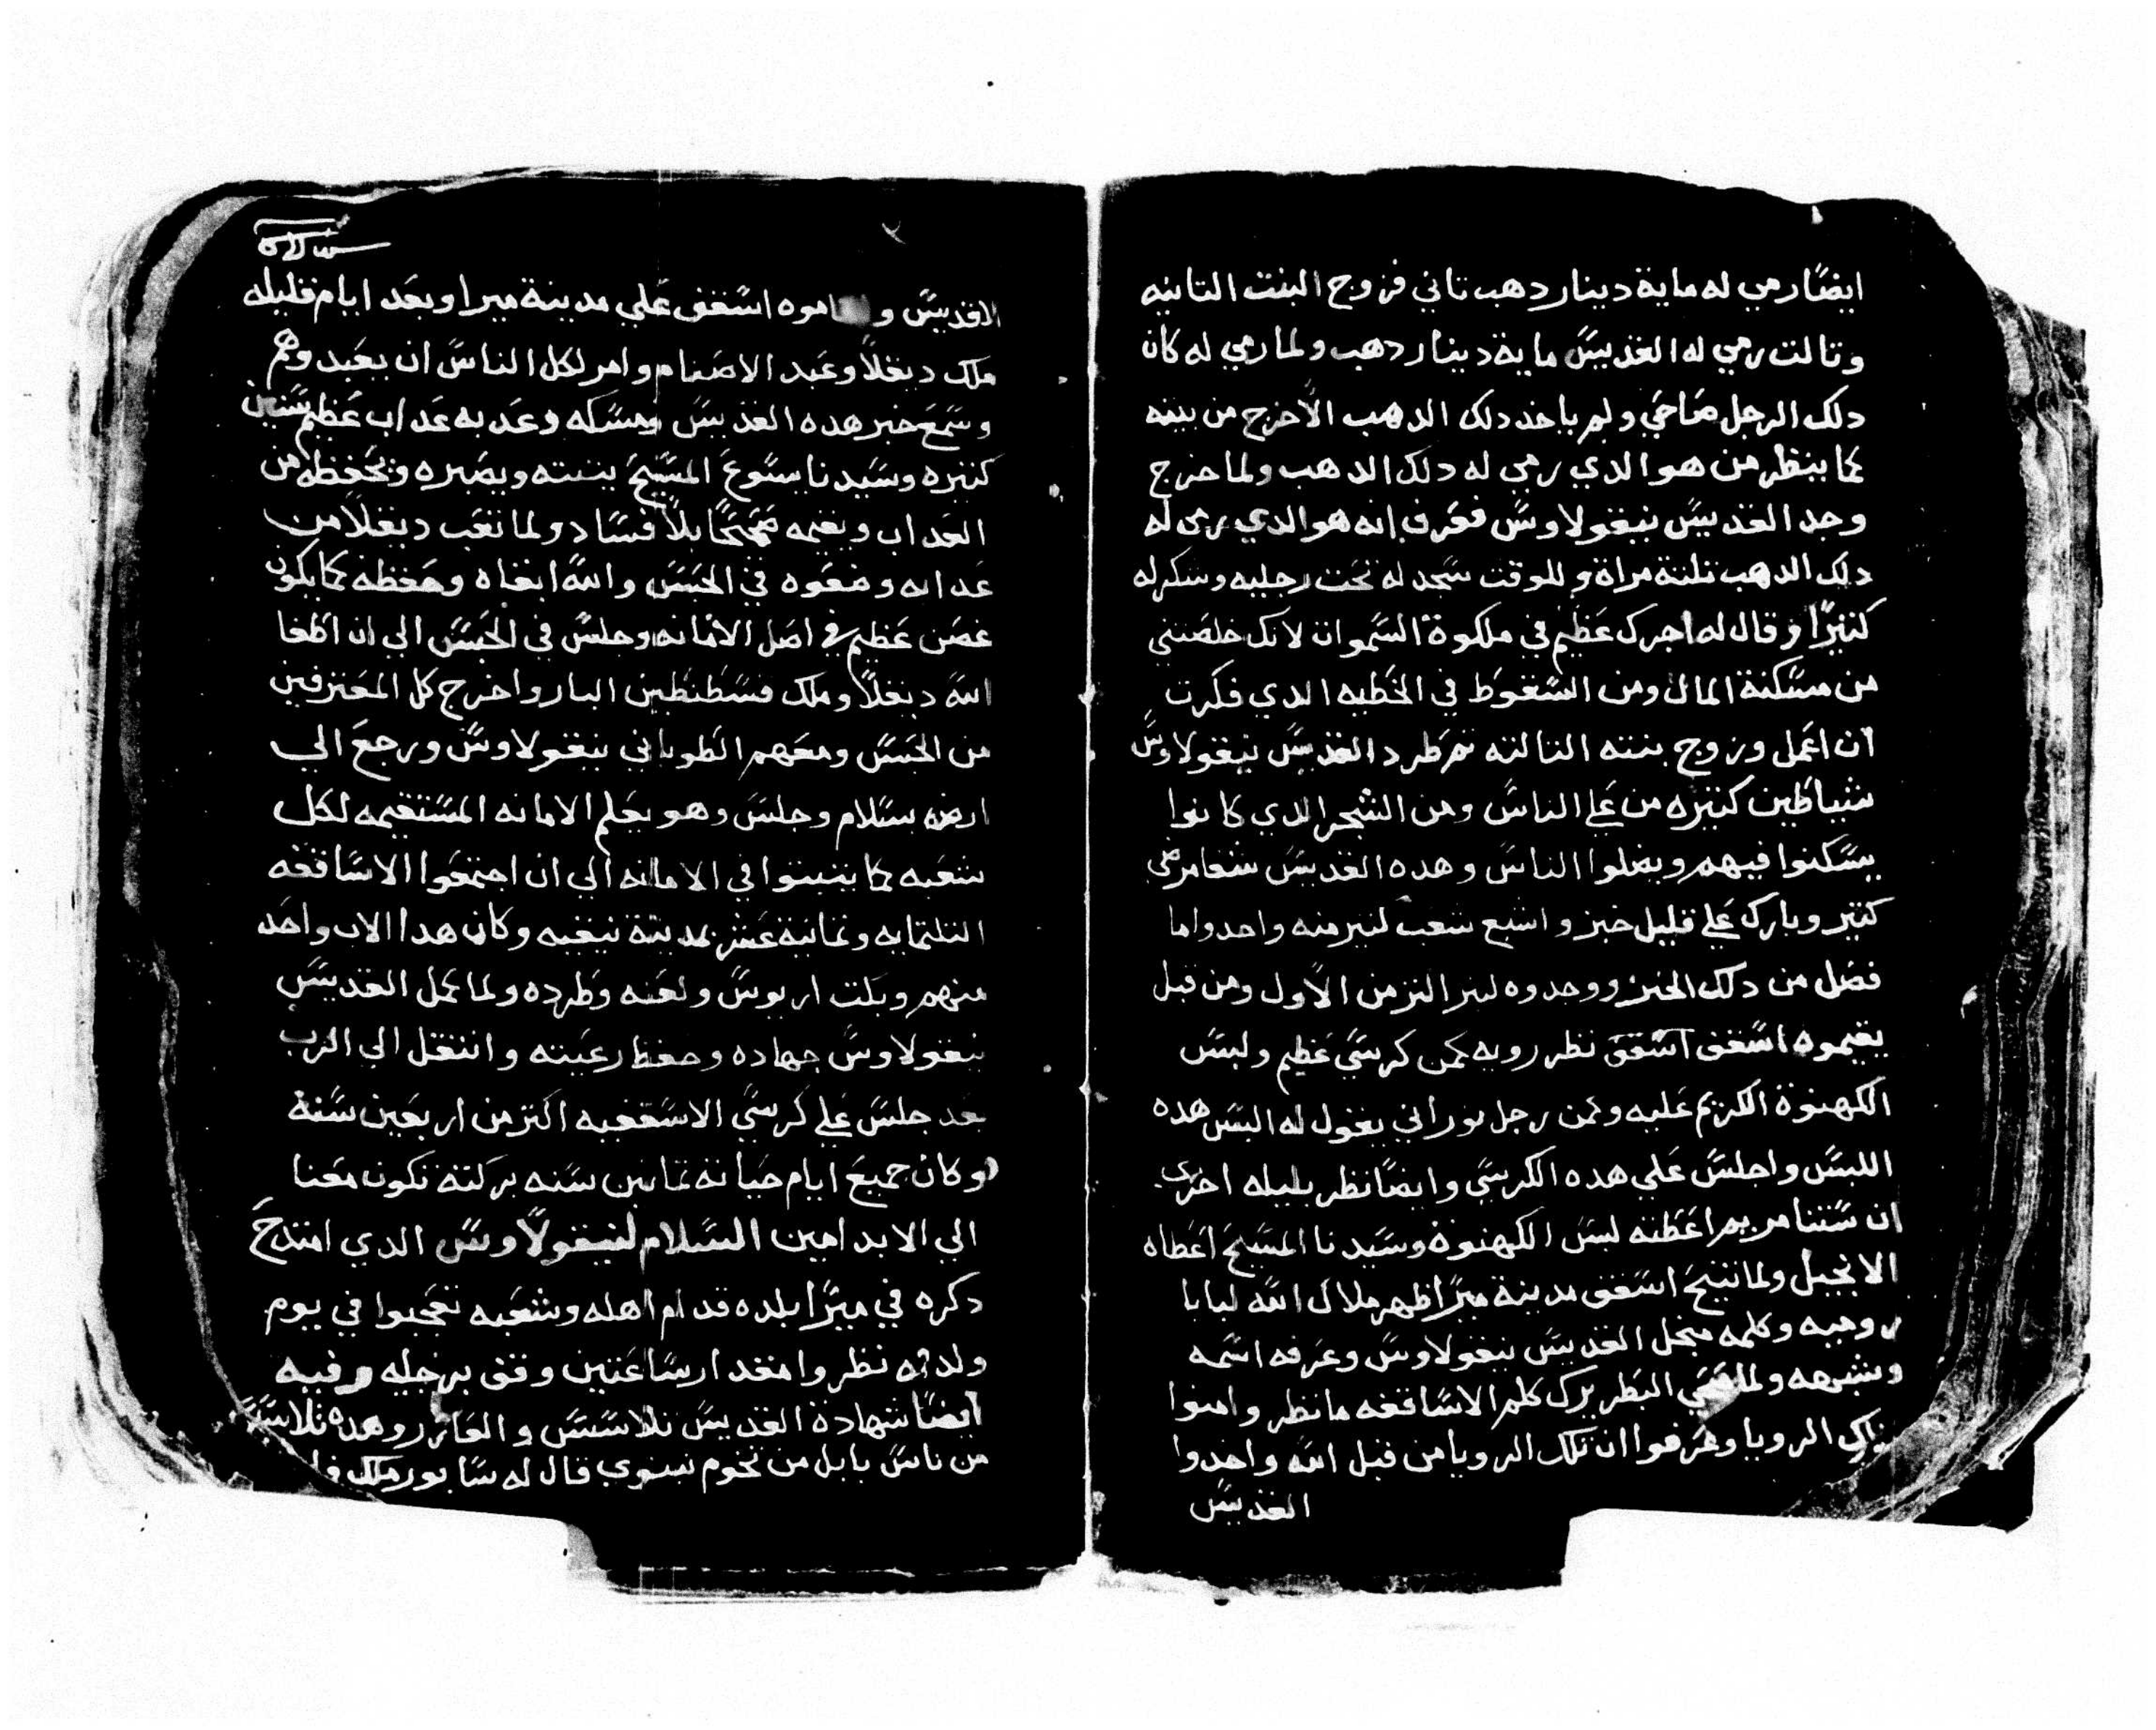 ايضًا رمي له ماية دينار دهب تاني فزوج البنت التانيه
وتالت رمي له القديسَ ماية دينار دهب ولما رمي له كان
دلك الرجل صَاحَي ولم ياخد دلك الدهب الاخرج من بيته
كما ينظر من هو الدي رمي له دلك الدهب ولما خرج
وجد القديسَ نيقولاوسَ فعَرف انه هو الدي رمي له
دلك الدهب تلتة مراة وللوقت سَجد له تحَت رجليه وشكر له
كتيرًا وقال له اجرك عَظيم في ملكوة السَموات لانك خلصَتني
من مسَكنة المال ومن السَقوط في الخَطيه الدي فكرت
ان اعَمل وزوج بنته التالته تم طرد القديسَ نيقولاوسَ
شياطَين كتيره من عَلي الناسَ ومن الشجر الدي كانوا
يسَكنوا فيهم ويضلوا الناسَ وهده القديسَ شفا مرضَي
كتير وبارك عَلي قليل خبز واشبع شعب كتير منه واحدوا ما
فضَل من دلك الخبز ووجدوه كتير اكتر من الاول ومن قبل
يقيموه اسَقف اسَقف نظر رويه كمن كرسَي عَظيم ولبسَ
الكهنوة الكريم عَليه وكمن رجل نوراني يقول له البسَ هده
اللبسَ واجلسَ عَلي هده الكرسَي وايضًا نظر بليله اخري
ان سَتنا مريم اعَطته لبسَ الكهنوة وسَيدنا المسَيحَ اعَطاه
الانجيل ولما تنيحَ اسَقف مدينة ميرا ظهر ملاك الله لبابا
روميه وكلمه منجل القديسَ نيقولاوسَ وعَرفه اسَمه
وشبهه ولما البَطريرك كلم الاسَاقفه ما نظر وامنوا
الرويا وعَرفوا ان تلك الرويا من قبل الله واخدوا
القديسَ
الاقديسَ و اسَقف عَلي مدينة ميرا وبعَد ايام قليله
ملك ديقلا وعَبد الاصَنام وامر لكل الناسَ ان يعَبدوهم
وسَمعَ خبر هده القديسَ ومسَكه وعَدبه عَداب عَظيم سَنين
كتيره وسَيدنا يسَوعَ المسَيحَ يتبته ويصَبره ويحَفظه من
العَداب ويقيمه صَحَيحًا بلا فسَاد ولما تعَب ديقلا من
عَدابه وضعَوه في الحَبسَ والله ابقاه وحَفظه كما يكون
غصَن عَظيم في اصَل الامانه وجلسَ في الحَبسَ الي ان اطَفا
الله ديقلا وملك قسَطَنطَين البار واخرج كل المعَترفين
من الحَبسَ ومعَهم الطَوباني نيقولاوسَ ورجعَ الي
ارضه بسَلام وجلسَ وهو يعَلم الامانه المسَتقيمه لكل
شعَبه كما يتبتوا في الامانه الي ان اجتمعَوا الاسَاقفه
التلتمايه وتمانية عَشر بمدينة نيقيه وكان هدا الاب واحَد
منهم وبكت اريوسَ ولعَنه وطَرده ولما كمل القديسَ
نيقولاوسَ جهاده وحفظ رعَيته وانتقل الي الرب
بعد جلسَ عَلي كرسَي الاسَقفيه اكتر من اربعَين سَنة
وكان جميعَ ايام حَياته تمانين سَنه بركته تكون معَنا
الي الابد امين السَلام لنيقولاوسَ الدي امتدحَ
دكره في ميرا بلده قدام اهله وشعَبه تعَجبوا في يوم
ولدته نظروا مقدار سَاعَتين وقف برجليه وفيه
ايضًا شهادة القديسَ تلاسَسَ والعَازر وهده تلاسَسَ
من ناسَ بابل من تخوم نينوي قال له سَابور ملك